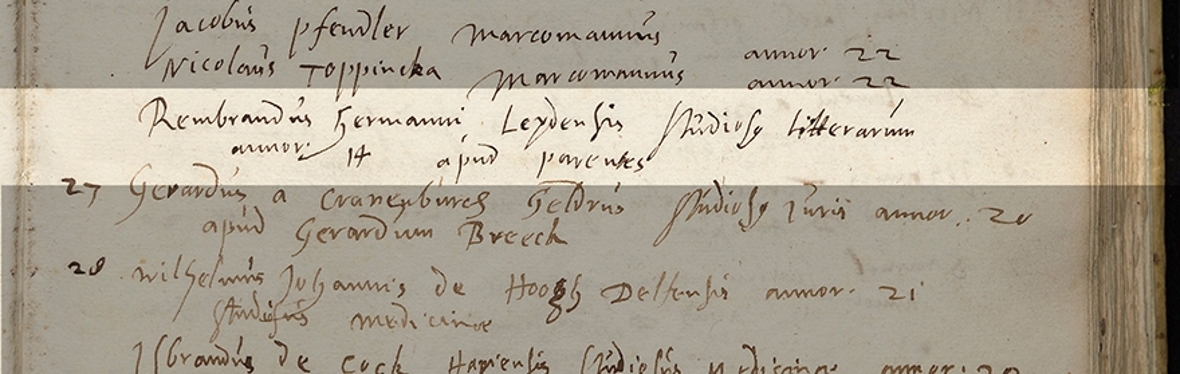 Jacobus Pfendler Marcomannus annor. 22
Nicolaus Toppincka Marcomannus annor. 22
Rembrandus Hermanni Leydensis studiosus litterarum
annor. 14 apud parentes
27 Gerardus a Cranenburch Geldrus studiosus Juris annor. 20
apud Gerardum Breeck
28 Wilhelmus Johannis de Hoogh Delfensis annor. 21
studiosus medicinae
Isbrandus de Cock studiosus annor. 20